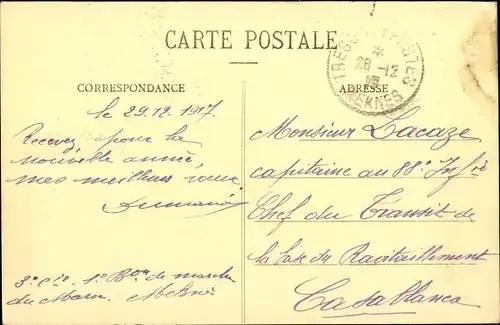 CARTE POSTALE
TRESOR ET POSTES
*
28 -12
MEKNES
CORRESPONDANCE
ADRESSE
le 29.12.1917.
Recevez, pour la
nouvelle année,
mes meilleurs vœux.
3e Cie. 1er Bon de marche
du Maroc. Meknès
Monsieur Lacaze
capitaine au 88e Inf ie
Chef du Transit de
la base du Ravitaillement
Casablanca